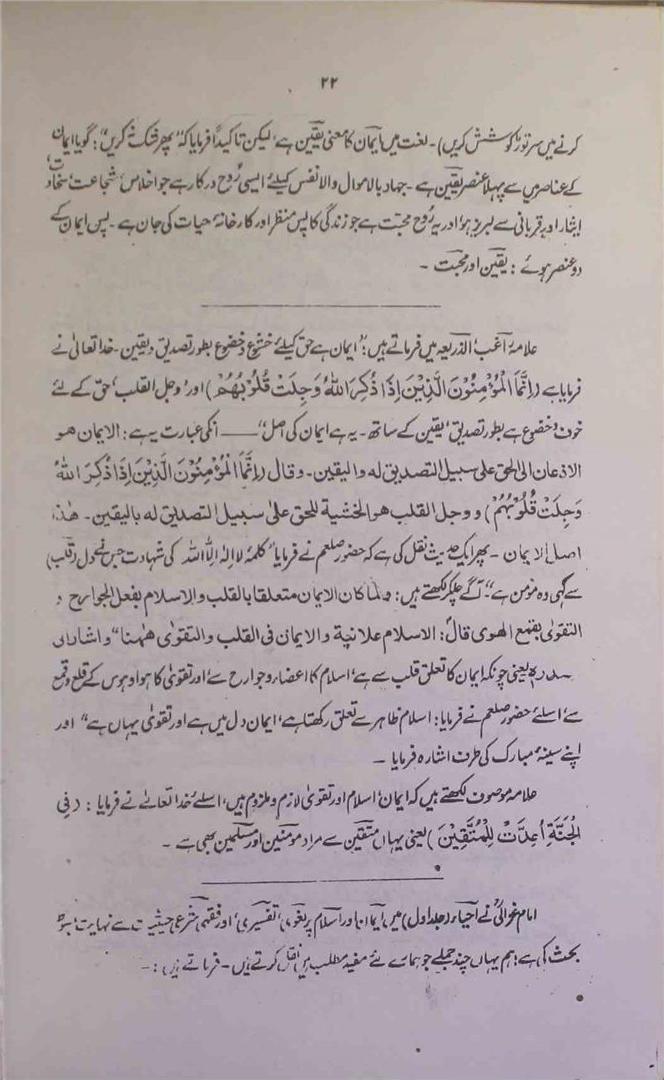 ۲۲
کرنے میں سر توڑ کوشش کریں)۔ لغت میں ایمان کا معنی یقین ہے، لیکن تاکیداً فرمایا کہ ”پھر شک نہ کریں“: گویا ایمان
کے عناصر میں سے پہلا عنصر یقین ہے۔ جہاد بالاموال والانفس کیلئے ایسی رُوح درکار ہے جو اخلاص، شجاعت، سخاوت،
ایثار اور قربانی سے لبریز ہو اور یہ رُوح محبت ہے جو زندگی کا پس منظر اور کارخانۂ حیات کی جان ہے۔ پس ایمان کے
دو عنصر ہوئے: یقین اور محبت۔
علامہ راغب الذریعہ میں فرماتے ہیں: ”ایمان ہے حق کیلئے خشوع و خضوع بطور تصدیق و یقین۔ خدا تعالیٰ نے
فرمایا ہے (اِنَّمَا الْمُؤْمِنُوْنَ الَّذِیْنَ اِذَا ذُکِرَ اللهُ وَجِلَتْ قُلُوْبُهُمْ) اور ’وجل القلب‘ حق کے لئے
خوف و خضوع ہے بطور تصدیق، یقین کے ساتھ۔ یہ ہے ایمان کی اصل“ —— انکی عبارت یہ ہے: الایمان هو
الاذعان الی الحق علی سبیل التصدیق له والیقین۔ وقال (اِنَّمَا الْمُؤْمِنُوْنَ الَّذِیْنَ اِذَا ذُکِرَ اللهُ
وَجِلَتْ قُلُوْبُهُمْ) ووجل القلب هو الخشیة للحق علی سبیل التصدیق له بالیقین۔ هٰذا
اصل الایمان۔ پھر ایک حدیث نقل کی ہے کہ حضور صلعم نے فرمایا ”کلمۂ لا الٰہ الا اللہ کی شہادت جس نے دل (قلب)
سے دی وہ مومن ہے“۔ آگے چلکر لکھتے ہیں: ولما کان الایمان متعلقا بالقلب والاسلام بفعل الجوارح و
التقویٰ بقمع الهویٰ قال: الاسلام علانیة والایمان فی القلب والتقویٰ ههنا“ واشار الی
صدره یعنی چونکہ ایمان کا تعلق قلب سے ہے، اسلام کا اعضاء و جوارح سے، اور تقویٰ کا ہوا و ہوس کے قلع و قمع
سے، اسلئے حضور صلعم نے فرمایا: اسلام ظاہر سے تعلق رکھتا ہے، ایمان دل میں ہے اور تقویٰ یہاں ہے“ اور
اپنے سینۂ مبارک کی طرف اشارہ فرمایا۔
علامہ موصوف لکھتے ہیں کہ ایمان، اسلام اور تقویٰ لازم و ملزوم ہیں، اسلئے خدا تعالیٰ نے فرمایا: (فِی
الْجَنَّةِ اُعِدَّتْ لِلْمُتَّقِیْنَ) یعنی یہاں متقین سے مراد مومنین اور مسلمین بھی ہے۔
امام غزالیؒ نے احیاء (جلد اول) میں ایمان اور اسلام پر لغوی، تفسیری، اور فقہی شرعی حیثیت سے نہایت مبسوط
بحث کی ہے؛ ہم یہاں چند جملے جو ہمارے لئے مفید مطلب ہیں نقل کرتے ہیں۔ فرماتے ہیں:۔